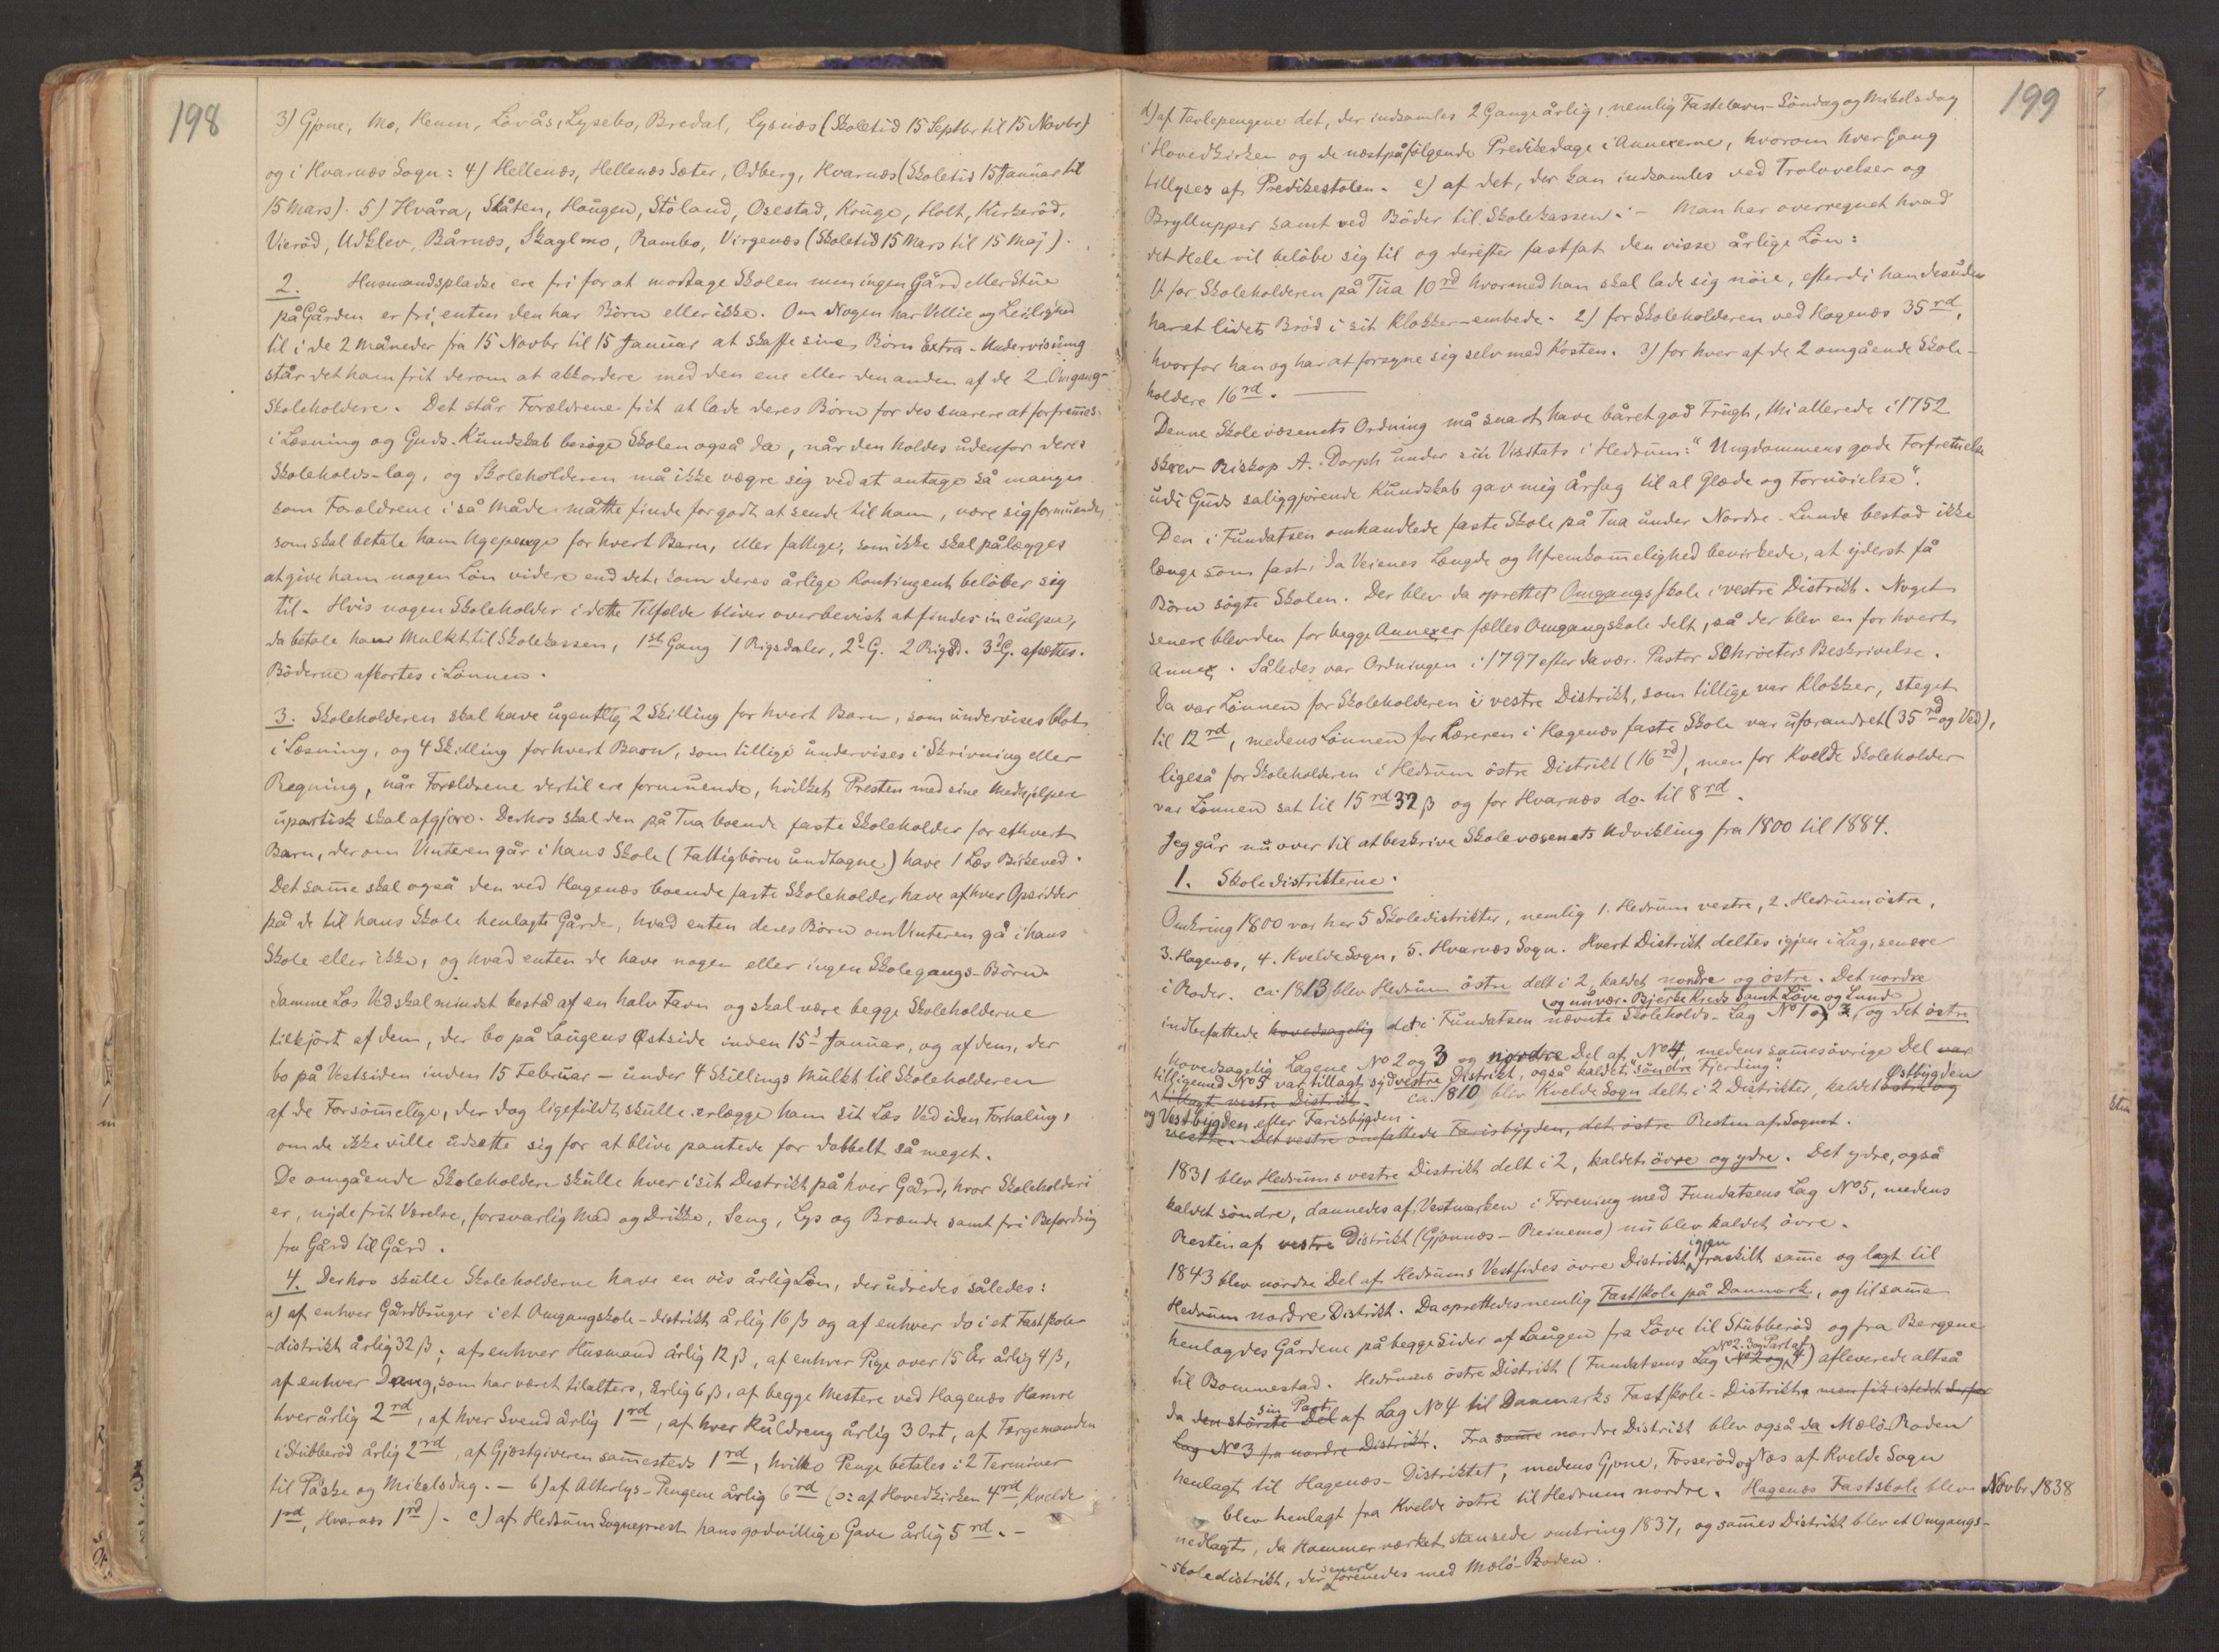 198
3) Gjone, Mo, Heum, Lövås, Lysebo, Bredal, Lysnæs (Skoletid 15 Septbr til 15 Novbr)
og i Hvarnæs Sogn: 4) Hellenæs, Hellenæs Sæter, Odberg, Hvarnæs (Skoletid 15 Januar til
15 Mars). 5) Hvåra, Skåten, Haugen, Stöland, Osestad, Kruge, Holt, Kirkeröd,
Vieröd, Udklev, Bårnæs, Skaglmo, Rambo, Virgenæs (Skoletid 15 Mars til 15 Maj).
2. Husmandspladse ere fri for at modtage Skolen men ingen Gård eller Stue
på Gården er fri, enten den har Börn eller ikke. Om Nogen har Villie og Leilighed
til i de 2 Måneder fra 15 Novbr til 15 Januar at skaffe sine Börn Extra-Undervisning
står det ham frit derom at akkordere med den ene eller den anden af de 2 Omgang-
skoleholdere. Det står Forældrene frit at lade deres Börn for des snarere at forfremes
i Læsning og Guds-Kundskab besöge Skolen også da, når den holdes udenfor deres
Skoleholds-lag, og Skoleholderen må ikke vægre sig ved at antage så mange
som Forældrene i så Måde måtte finde for godt at sende til ham, være sig formuende,
som skal betale ham Ugepenge for hvert Barn, eller fattige, som ikke skal pålægges
at give ham nogen Lön videre end det, som deres årlige Kontingent belöber sig
til. Hvis nogen Skoleholder i dette Tilfælde bliver overbevist at findes in culpa,
da betale han Mulkt til Skolekassen, 1ste Gang 1 Rigsdaler, 2d G. 2 Rigsd. 3d G. afsættes.
Böderne afkortes i Lönnen.
3. Skoleholderen skal have ugentlig 2 Skilling for hvert Barn, som undervises blot
i Læsning, og 4 Skilling for hvert Barn, som tillige undervises i Skrivning eller
Regning, når Forældrene dertil ere formuende, hvilket Presten med sine Medhjelpere
upartisk skal afgjöre. Derhos skal den på Tua boende faste Skoleholder for ethvert
Barn, der om Vinteren går i hans Skole (Fattigbörn undtagne) have 1 Læs Birkeved.
Det same skal også den ved Hagenæs boende faste Skoleholder have af hver Opsidder
på de til hans Skole henlagte Gårde, hvad enten deres Börn om Vinteren gå i hans
Skole eller ikke, og hvad enten de have nogen eller ingen Skolegangs-Börn.
Samme Læs Ved skal mindst bestå af en halv Favn og skal være begge Skoleholderne
tilkjört af dem, der bo på Laugens Östside inden 15d Januar, og af dem, der
bo på Vestsiden inden 15 Februar – under 4 Skillings Mulkt til Skoleholderen
af de Forsömelige, der dog ligefuldt skulle erlægge ham sit Læs Ved uden Forhaling,
om de ikke ville udsætte sig for at blive pantede for dobbelt så meget.
De omgående Skoleholdere skulle hver i sit Destrikt på hver Gård, hvor Skoleholderi
er, nyde frit Værelse, forsvarlig Mad og Drikke, Seng, Lys og Brænde samt fri Befordring
fra Gård til Gård.
4. Derhos skulle Skoleholderne have en vis årlig Lön, der udredes således:
a) af enhver Gårdbruger i et Omgangskole-distrikt årlig 16 β og af enhver do i et Fastskole-
-distrikt årlig 32 β; af enhver Husmand årlig 12 β, af enhver Pige over 15 År årlig 4 β,
af enhver Dreng, som har været tilalters, årlig 6 β, af begge Mestere ved Hagenæs Hamre
hver årlig 2 rd, af hver Svend årlig 1 rd, af hver Kuldreng årlig 3 Ort, af Færgemanden
i Stubberöd årlig 2 rd, af Gjæstgiveren samesteds 1 rd, hvilke Penge betales i 2 Terminer
til Påske og Mikelsdag. – b) af Alterlys-Pengene årlig 6 rd (ɔ: af Hovedkirken 4 rd, Kvelde
1 rd, Hvarnæs 1 rd). c) af Hedrum Sogneprest hans godvillige Gave årlig 5 rd. –
199
d) af Tavlepengene det, der indsamles 2 Gange årlig, nemlig Fastelavn-Söndag og Mikelsdag
i Hovedkirken og de næstpåfölgende Predikedage i Annexerne, hvorom hver Gang
tillyses af Predikestolen. e) af det, der kan indsamles ved Trolovelser og
Bryllupper samt ved Böder til Skolekassen. – Man har overregnet hvad
det Hele vil belöbe sig til og derefter fastsat den visse årlige Lön:
1) for Skoleholderen på Tua 10 rd hvormed han skal lade sig nöie, efterdi han desuden
har et lidet Bröd i sit Klokker-embede. 2) for Skoleholderen ved Hagenæs 35 rd,
hvorfor han og har at forsyne sig selv med Kosten. 3) for hver af de 2 omgående Skole-
holdere 16 rd.
Denne Skolevæsenets Ordning må snart have båret god Frugt, thi allerede i 1752
skrev Biskop A. Dorph under sin Visitats i Hedrum: "Ungdommens gode Forfremelse
udi Guds saliggjörende Kundskab gav mig Årsag til al Glæde og Fornöielse".
Den i Fundatsen omhandlede faste Skole på Tua under Nordre-Lunde bestod ikke
længe som fast, da Veienes Længde og Ufremkomelighed bevirkede, at yderst få
Börn sögte Skolen. Der blev da oprettet Omgangsskole i vestre Distrikt. Noget
senere blev den for begge Annexer fælles Omgangskole delt, så der blev en for hvert
Annex. Således var Ordningen i 1797 efter davær. Pastor Schröeters Beskrivelse.
Da var Lönnen for Skoleholderen i vestre Distrikt, som tillige var Klokker, steget
til 12 rd, medens Lönnen for Læreren i Hagenæs faste Skole var uforandret (35 rd og Ved),
ligeså for Skoleholderen i Hedrum östre Distrikt (16 rd), men for Kvelde Skoleholder
var Lönnen sat til 15 rd 32 β og for Hvarnæs do. til 8 rd.
Jeg går nu over til at beskrive Skolevæsenets Udvikling fra 1800 til 1884.
1. Skoledistrikterne.
Omkring 1800 var her 5 Skoledistrikter, nemlig 1. Hedrum vestre, 2. Hedrum östre,
3. Hagenæs, 4. Kvelde Sogn, 5. Hvarnæs Sogn. Hvert Distrikt deltes igjen i Lag, senere
i Roder. ca. 1813 blev Hedrum östre delt i 2, kaldet nordre og östre. Det nordre
og nuvær. Bjerke Kreds samt Löve og Lunde
indbefattede hovedsagelig det i Fundatsen nævnte Skoleholds-Lag No 1 og 2, og det östre
hovedsagelig Lagene No 2 og 3 og nordre Del af No 4, medens sames övrige Del var
tilligemed No 5 var tillagt sydvestre Distrikt, også kaldet "söndre Fjerding".
tillagt vestre Distrikt. ca. 1810 blev Kvelde Sogn delt i 2 Distrikter, kaldet östre og Östbygden
og Vestbygden eller Farisbygden.
vestre. Det vestre omfattede Farisbygden, det östre Resten af Sognet.
1831 blev Hedrums vestre Distrikt delt i 2, kaldet övre og ydre. Det ydre, også
kaldet söndre, dannedes af Vestmarken i Forening med Fundatsens Lag No 5, medens
Resten af vestre Distrikt (Gjønnæs – Reinemo) nu blev kaldet övre.
1843 blev nordre Del af Hedrums Vestsides övre Distrikt igjen fraskilt same og lagt til
Hedrum nordre Distrikt. Da oprettedes nemlig Fastskole på Danmark, og til same
henlagdes Gårdene på begge Sider af Laugen fra Löve til Stubberöd og fra Bergene
til Bommestad. Hedrums östre Distrikt (Fundatsens Lag No 2 og 4 No 2. 3 og Part af 4) afleverede altså
da den störste Del sin Part af Lag No 4 til Danmarks Fastskole-Distrikt, men fik istedet derfor
Lag No 3 fra nordre Distrikt. Fra same nordre Distrikt blev også da Mælö-Roden
henlagt til Hagenæs-Distriktet, medens Gjone, Fosseröd og Næs af Kvelde Sogn
blev henlagt fra Kvelde östre til Hedrum nordre. Hagenæs Fastskole blev Novbr. 1838
nedlagt, da Hammerværket stansede omkring 1837, og sames Distrikt blev et Omgangs-
-skoledistrikt, der senere forenedes med Mælö-Roden.